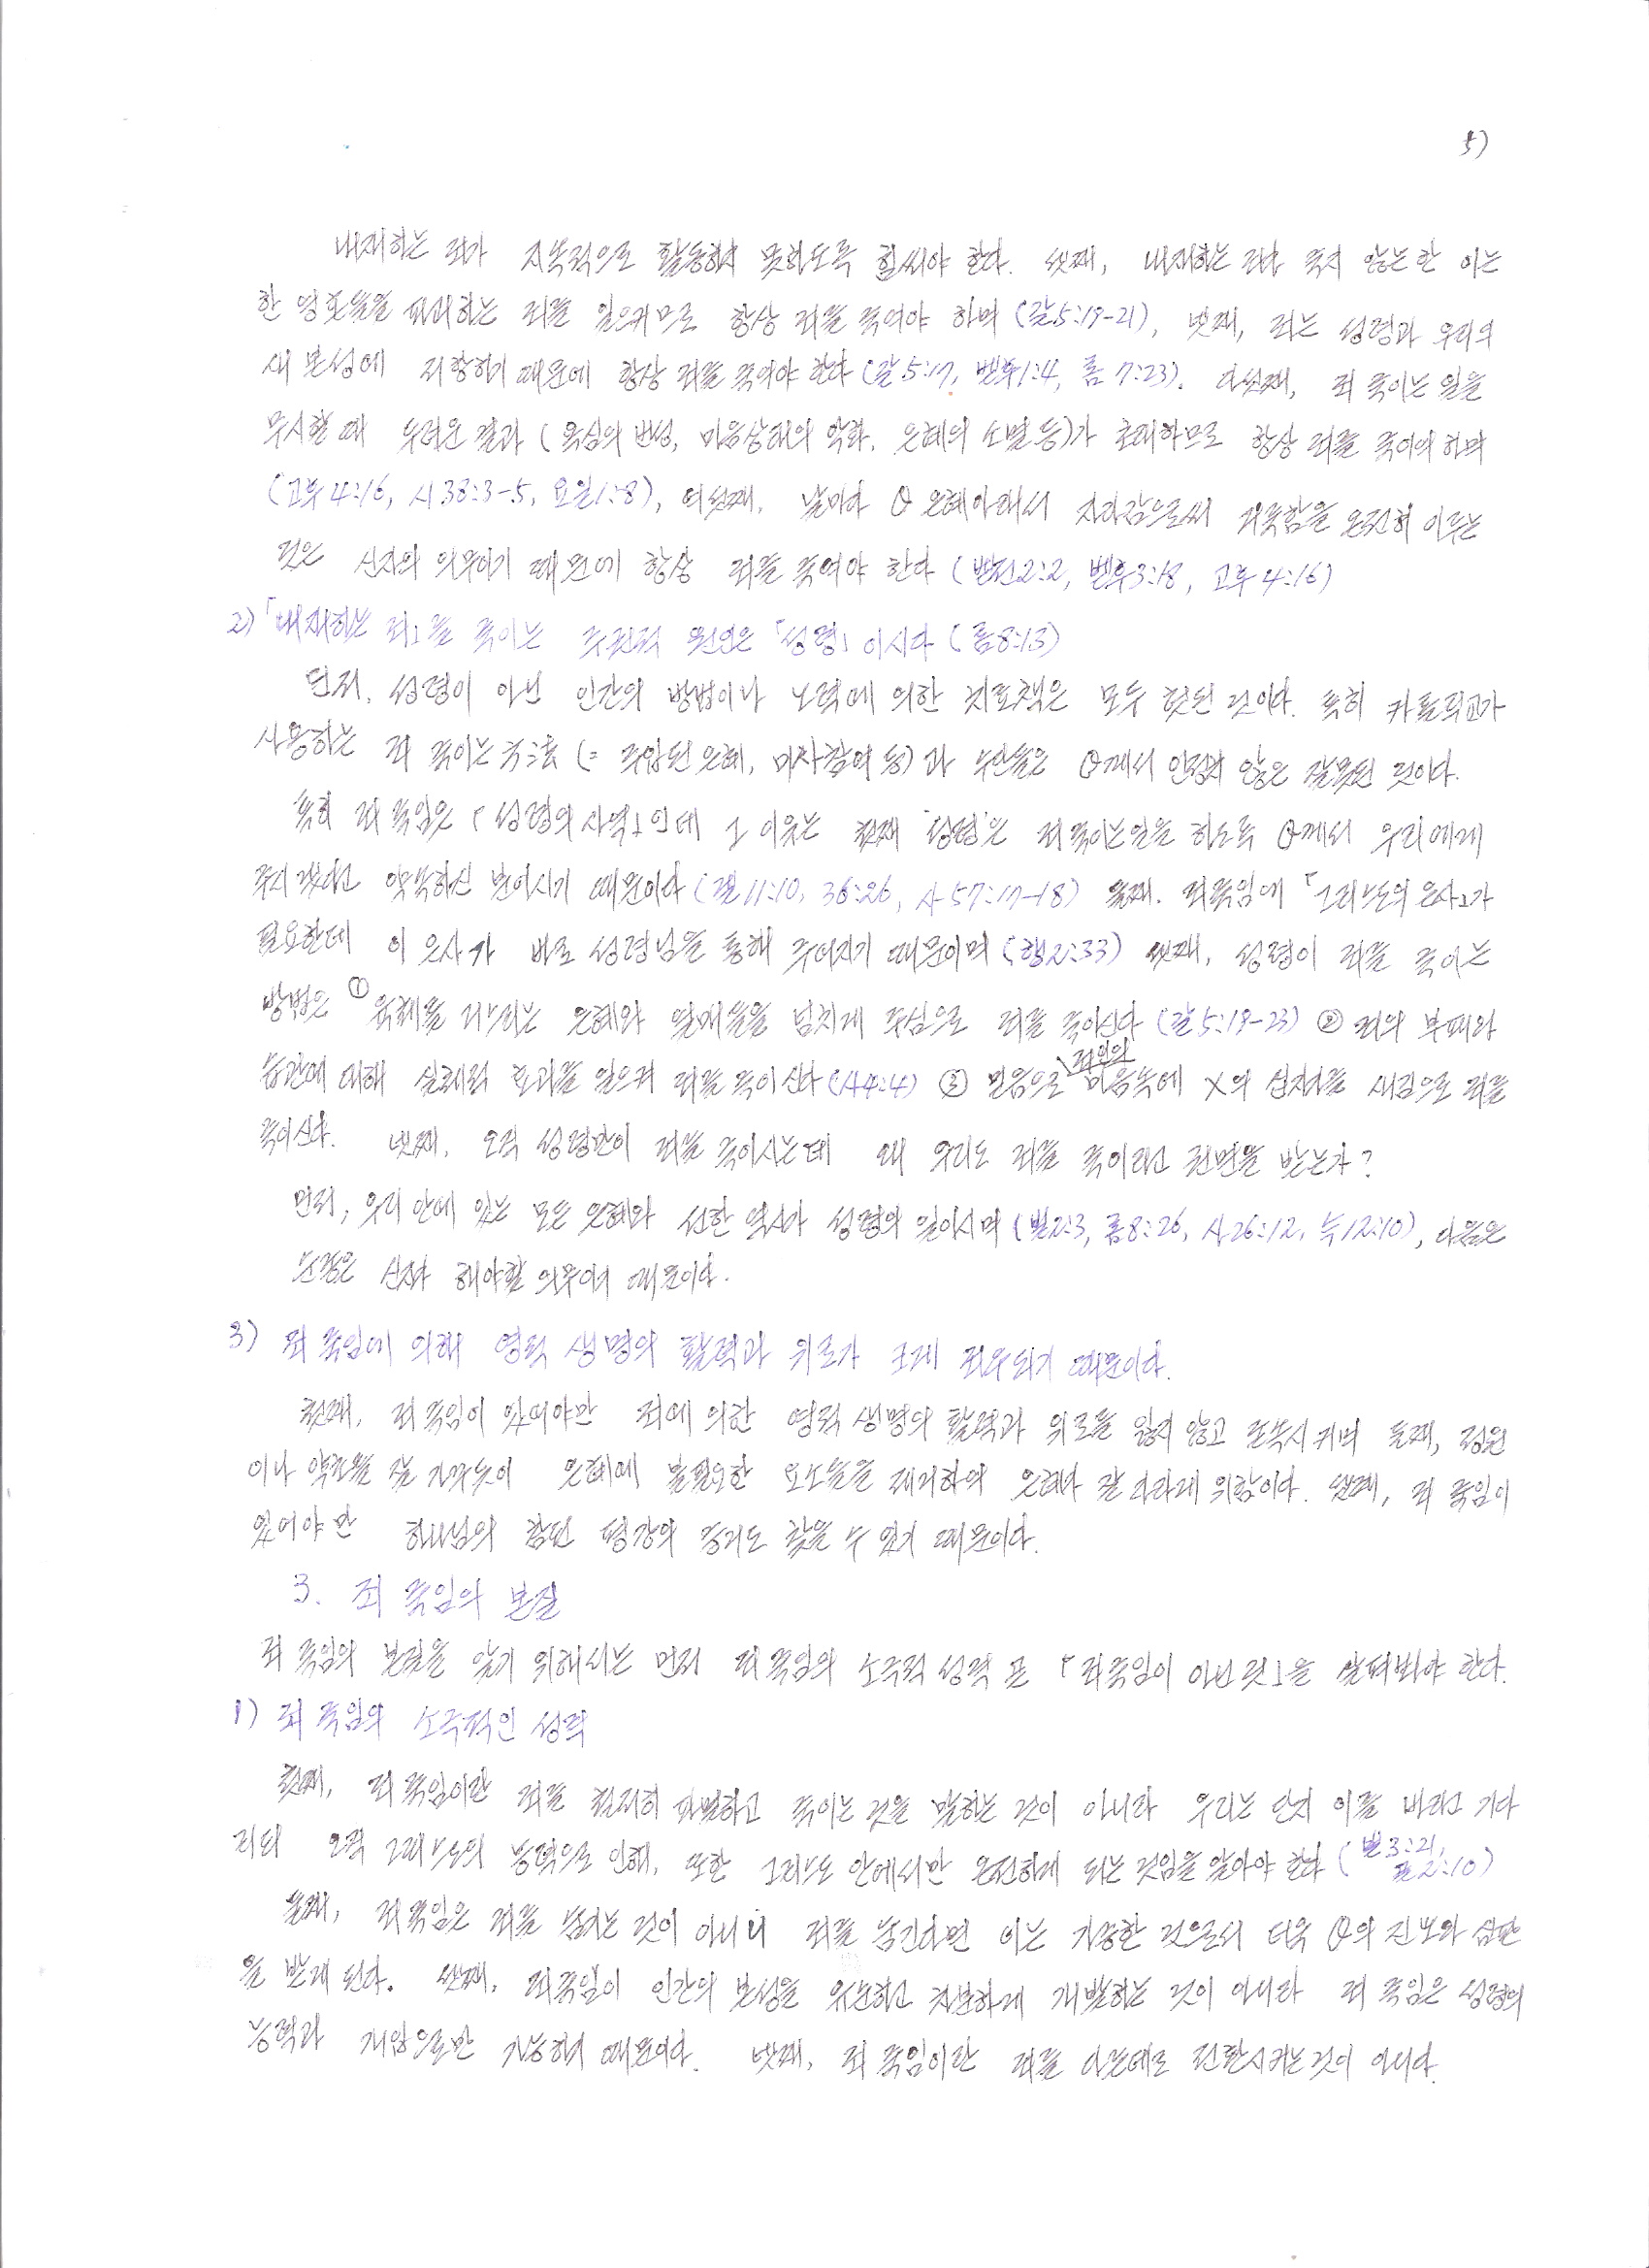 5)
내재하는 죄가 지속적으로 활동하지 못하도록 힘써야 한다. 셋째, 내재하는 죄가 죽지 않는한 이는
한 영혼들을 파괴하는 죄를 일으키므로 항상 죄를 죽여야 하며 (갈5:19-21), 넷째, 죄는 성령과 우리의
새 본성에 저항하기 때문에 항상 죄를 죽여야 한다 (갈5:17, 벧후1:4, 롬 7:23). 다섯째, 죄 죽이는 일을
무시할 때 두려운 결과 (욕심의 번성, 마음상태의 악화, 은혜의 소멸 등)가 초래하므로 항상 죄를 죽여야 하며
(고후4:16, 사38:3-5, 요일1:8), 여섯째, 날마다 θ 은혜아래서 자라감으로써 거룩함을 온전히 이루는
것은 신자의 의무이기 때문에 항상 죄를 죽여야 한다 (벧전2:2, 벧후3:18, 고후4:16)
2) 「내재하는 죄」를 죽이는 주권적 원인은 「성령」이시다 (롬8:13)
먼저, 성령이 아닌 인간의 방법이나 노력에 의한 치료책은 모두 헛된 것이다. 특히 카톨릭교가
사용하는 죄 죽이는 (= 주입된 은혜, 미사참여 등)과 수단들은 θ께서 인정치 않은 잘못된 것이다.
특히 죄 죽임은 「성령의 사역」인데 그 이유는 첫째 '성령'은 죄죽이는일을 하도록 θ께서 우리에게
주시겠다고 약속하신 분이시기 때문이다 (겔11:10, 36:26, 사57:17-18) 둘째. 죄죽임에 「그리스도의 은사」가
필요한데 이 은사가 바로 성령님을 통해 주어지기 때문이며 (행2:33) 셋째, 성령이 죄를 죽이는
방법은 ① 육체를 거스리는 은혜와 열매들을 넘치게 주심으로 죄를 죽이신다 (갈5:19-23) ② 죄의 부패와
습관에 대해 실제적 효과를 일으켜 죄를 죽이신다 (사4:4) ③ 믿음으로 죄인의 마음속에 X의 십자가를 새김으로 죄를
죽이신다. 넷째, 오직 성령만이 죄를 죽이시는데 왜 우리도 죄를 죽이라고 권면을 받는가?
먼저, 우리 안에 있는 모든 은혜와 선한 역사가 성령의 일이시며 (빌2:3, 롬8:26, 사26:12, 슥12:10), 다음은
순종은 신자가 해야할 의무이기 때문이다.
3) 죄 죽임에 의해 영적 생명의 활력과 위로가 크게 좌우되기 때문이다.
첫째, 죄 죽임이 있어야만 죄에 의한 영적 생명의 활력과 위로를 잃지 않고 존속시키며 둘째, 정원
이나 약초를 잘 가꾸듯이 은혜에 불필요한 요소들을 제거하여 은혜가 잘 자라게 위함이다. 셋째, 죄 죽임이
있어야만 하나님의 참된 평강의 증거도 찾을 수 있기 때문이다.
3. 죄 죽임의 본질
죄 죽임의 본질을 알기 위해서는 먼저 죄 죽임의 소극적 성격 곧 「죄죽임이 아닌것」을 살펴봐야 한다.
1) 죄 죽임의 소극적인 성격
첫째, 죄 죽임이란 죄를 완전히 파멸하고 죽이는 것을 말하는 것이 아니라 우리는 단지 이를 바라고 기다
리되 오직 그리스도의 능력으로 인해, 또한 그리스도 안에서만 온전하게 되는 것임을 알아야 한다 (빌3:21,
골2:10)
둘째, 죄죽임은 죄를 숨기는 것이 아니니 죄를 숨긴다면 이는 가장한 것으로서 더욱 θ의 진노와 심판
을 받게 된다. 셋째, 죄죽임이 인간의 본성을 유순하고 차분하게 개발하는 것이 아니라 죄 죽임은 성령의
능력과 개입으로만 가능하기 때문이다. 넷째, 죄 죽임이란 죄를 다른데로 전환시키는것이 아니다.